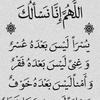 اللَّهُمَّ إِنَّا نَسْأَلُكَ
يُسْراً لَيْسَ بَعْدَهُ عُسْرٌ
وَغِنًى لَيْسَ بَعْدَهُ فَقْرٌ
وَأَمْناً لَيْسَ بَعْدَهُ خَوْفٌ